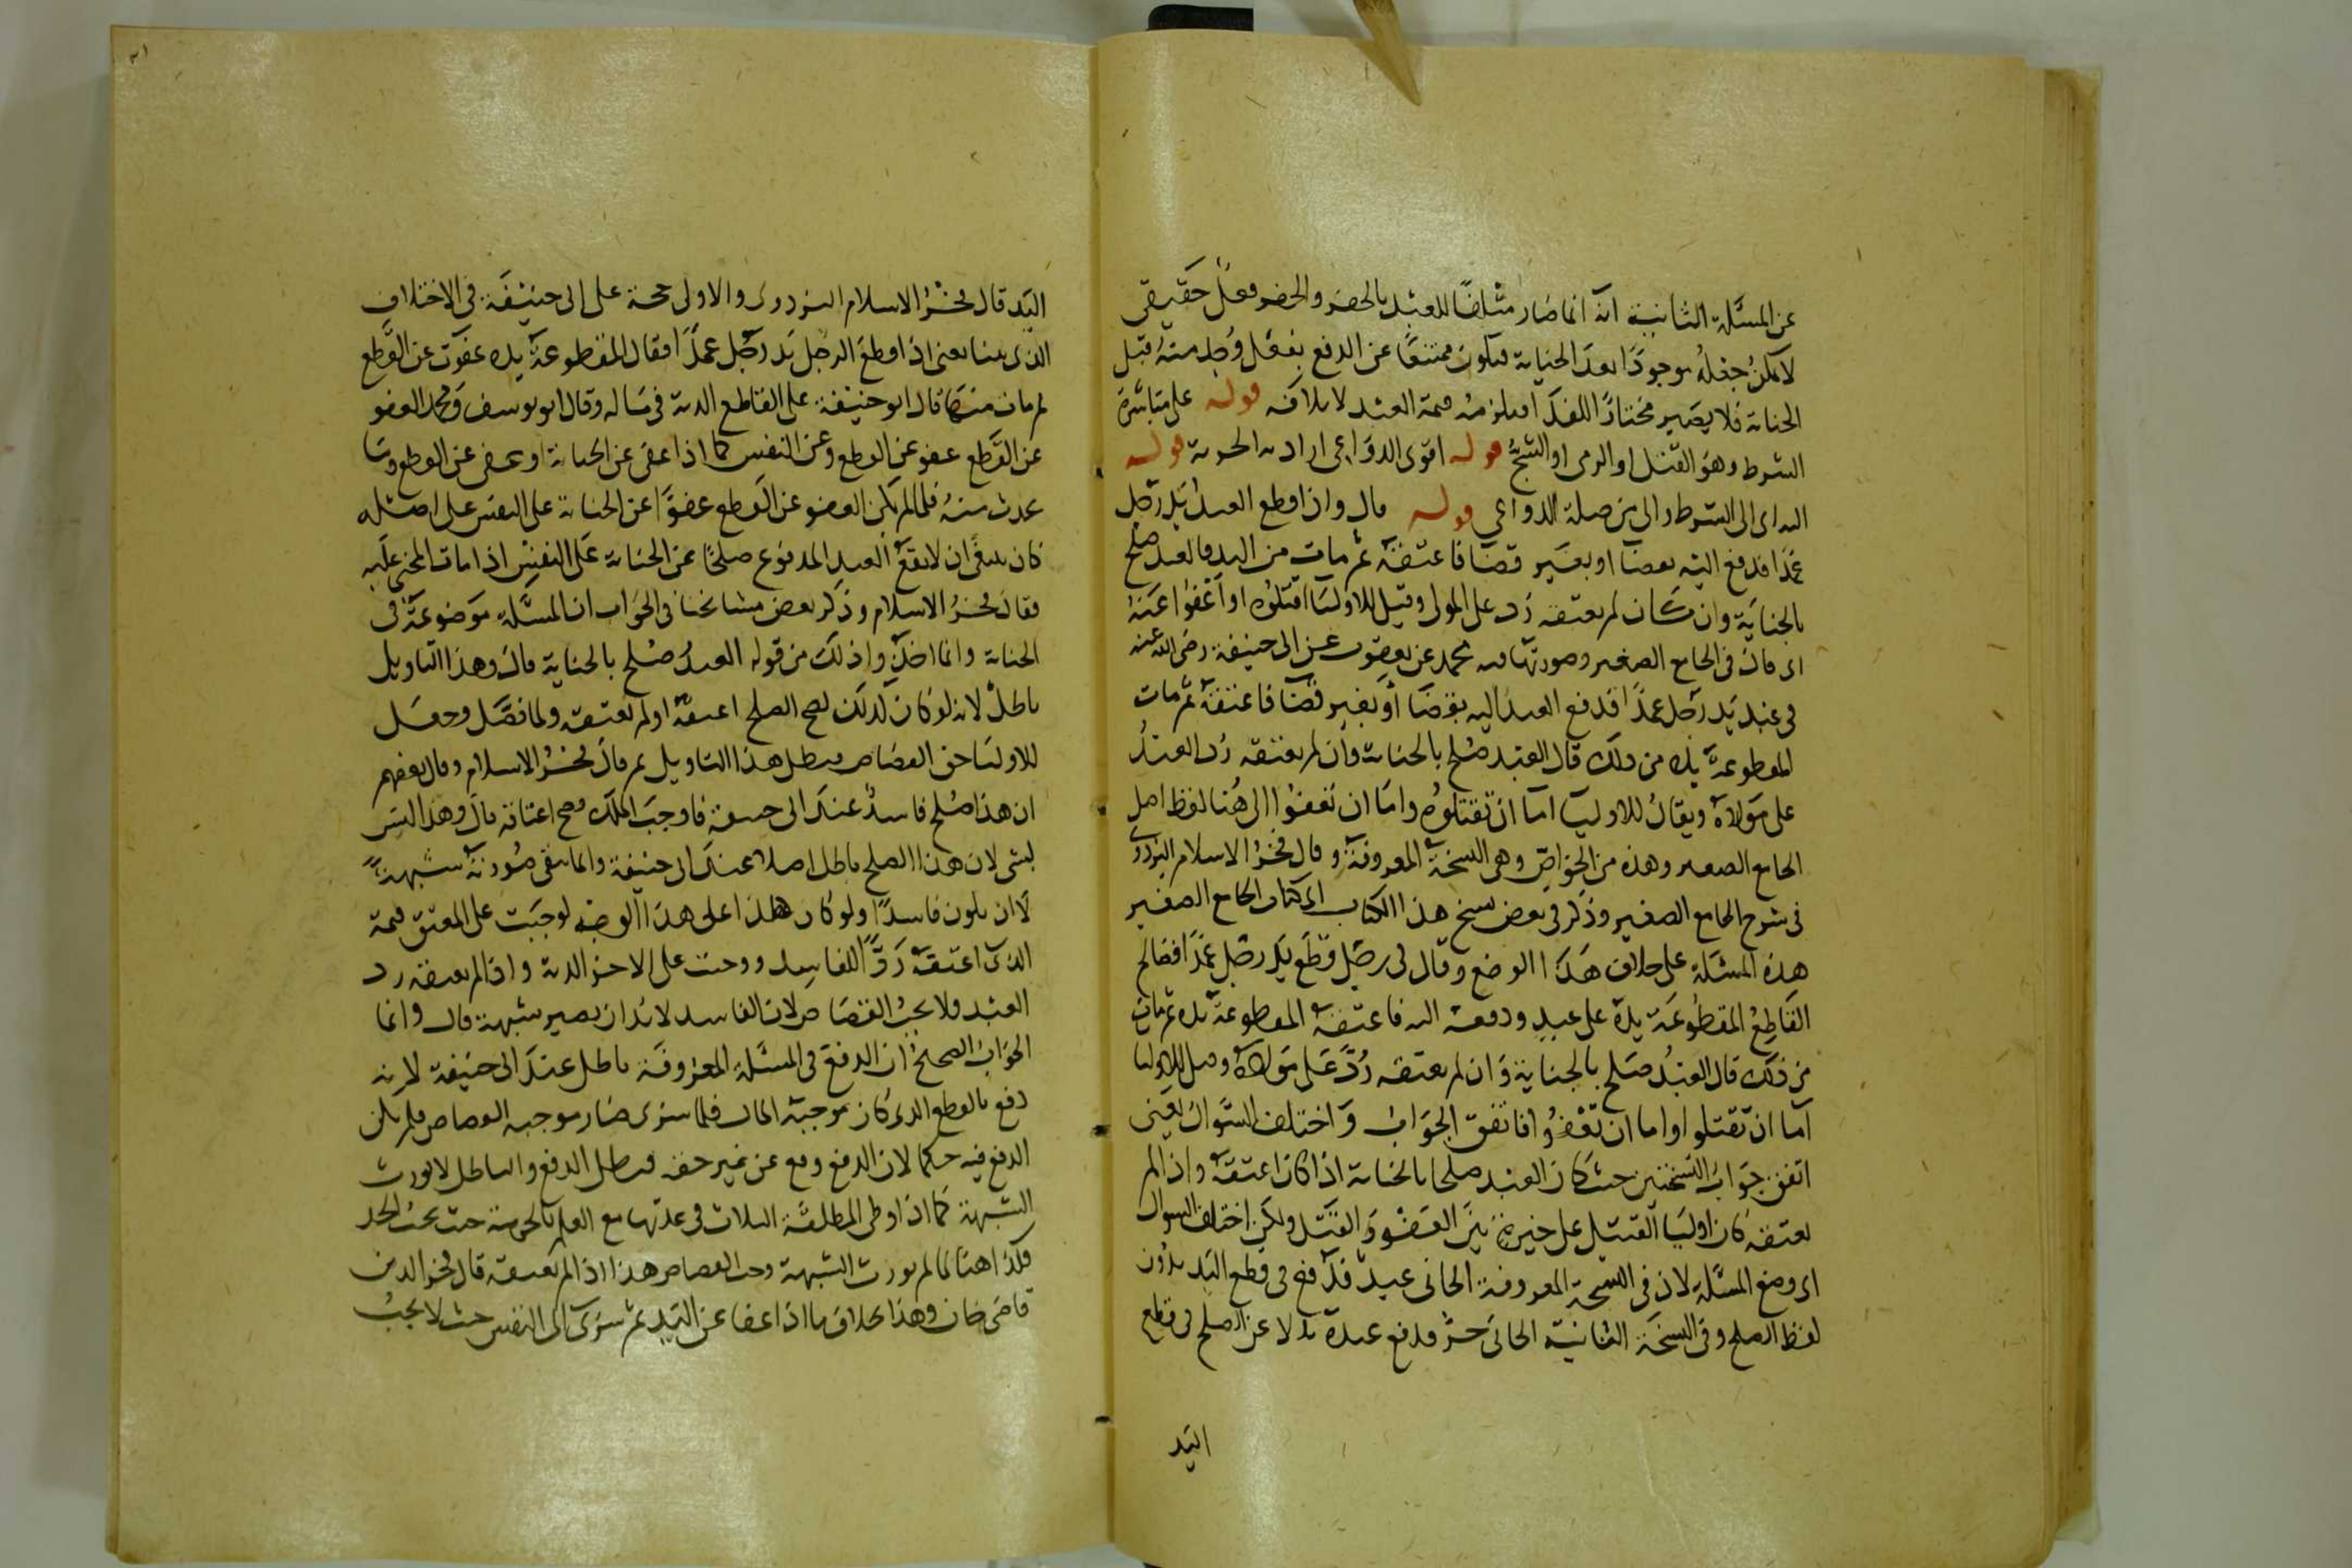 عن المسئلة الثانية انه انما صار متلفا للعبد بالحفر والحفر فعل حقيقي
لا يمكن جعله موجودا بعد الجناية فيكون ممتنعا عن الدفع بفعل وجد منه قبل
الجناية فلا يصير مختارا للفدا فيلزمه قيمة العبد لاتلافه قوله على مباشرة
الشرط وهو القتل او الرمى او الشج قوله اقوى الدواعى اراد به الحرية قوله
اليه اى الى الشرط والى من صلة الدواعي قوله قال واذا قطع العبد يد رجل
عمدا فدفع اليه بقضا او بغير قضا فاعتقه ثم مات من اليد فالعبد صلح
بالجناية وان كان لم يعتقه رد على المولى وقيل للاوليا اقتلوه او اعفوا عنه
اى قال فى الجامع الصغير وصورتها فيه محمد عن يعقوب عن ابى حنيفة رضى الله عنه
فى عبد قطع يد رجل عمدا فدفع العبد اليه بقضا او بغير قضا فاعتقه ثم مات
المقطوعة يده من ذلك قال العبد صلح بالجناية وان لم يعتقه رد العبد
على مولاه ويقال للاوليا اما ان تقتلوه واما ان تعفوا الى هنا لفظ اصل
الجامع الصغير وهذه من الخواص وهى النسخة المعروفة وقال فخر الاسلام البزدوى
فى شرح الجامع الصغير وذكر فى بعض نسخ هذا الكتاب اى كتاب الجامع الصغير
هذه المسئلة على خلاف هذا الوضع وقال فى رجل قطع يد رجل عمدا فصالح
القاطع المقطوعة يده على عبد ودفعه اليه فاعتقه المقطوعة يده ثم مات
من ذلك قال العبد صلح بالجناية وان لم يعتقه رد على مولاه وقيل للاوليا
اما ان تقتلوا واما ان تعفوا فاتفق الجواب واختلف السوال يعنى
اتفق جواب النسختين حيث كان العبد صلحا بالجناية اذا كان اعتقه واذا لم
يعتقه كان اوليا القتيل على خيرة بين العفو والقتل ولكن اختلف السوال
اى وضع المسئلة لان فى النسخة المعروفة الجانى عبد فدفع فى قطع اليد بدون
لفظ الصلح وفى النسخة الثانية الجانى حر فدفع عبده بدلا عن الصلح فى قطع
اليد
اليد قال فخر الاسلام البزدوى والاولى حجة على ابى حنيفة فى الاختلاف
الذى بينا يعنى اذا قطع الرجل يد رجل عمدا فقال المقطوعة يده عفوت عن القطع
ثم مات منها قال ابو حنيفة على القاطع الدية فى ماله وقال ابو يوسف ومحمد العفو
عن القطع عفو عن القطع وعن النفس كما اذا عفى عن الجناية او عفى عن القطع وما
يحدث منه فلما لم يكن العفو عن القطع عفوا عن الجناية على النفس على اصله
كان ينبغى ان لا يقع العبد المدفوع صلحا عن الجناية على النفس اذا مات المجنى عليه
فقال فخر الاسلام وذكر بعض مشايخنا فى الجواب ان المسئلة موضوعة فى
الجناية وانما اخذوا ذلك من قوله العبد صلح بالجناية قال وهذا التاويل
باطل لانه لو كان كذلك لصح الصلح اعتقه او لم يعتقه ولما فصل وجعل
للاوليا حق القصاص فبطل هذا التاويل ثم قال فخر الاسلام وقال بعضهم
ان هذا صلح فاسد عند ابى حنيفة فاوجب الملك وصح اعتاقه قال وهذا ليس
بشى لان هذا الصلح باطل اصلا عند ابى حنيفة وانما تبقى صورته شبهة
لا ان يكون فاسدا ولو كان هكذا على هذا الوضع لوجبت على المعتق قيمة
الذى اعتقه ردا للفاسد ووجبت على الاخر الدية واذا لم يعتقه رد
العبد ولا يجب القصاص لان الفاسد لا بد ان يصير شبهة قال وانما
الجواب الصحيح ان الدفع فى المسئلة المعروفة باطل عند ابى حنيفة لانه
دفع بالقطع الذى كان موجبه المال فلما سرى صار موجبه القصاص فلم يكن
الدفع فيه حكما لان الدفع وقع عن غير حقه فبطل الدفع والباطل لا يورث
الشبهة كما اذا وطى المطلقة الثلاث فى عدتها مع العلم بالحرمة حيث يجب الحد
فكذا هنا لما لم يورث الشبهة وجب القصاص هذا اذا لم يعتقه قال فخر الدين
قاضى خان وهذا بخلاف ما اذا عفا عن اليد ثم سرى الى النفس حيث لا يجب